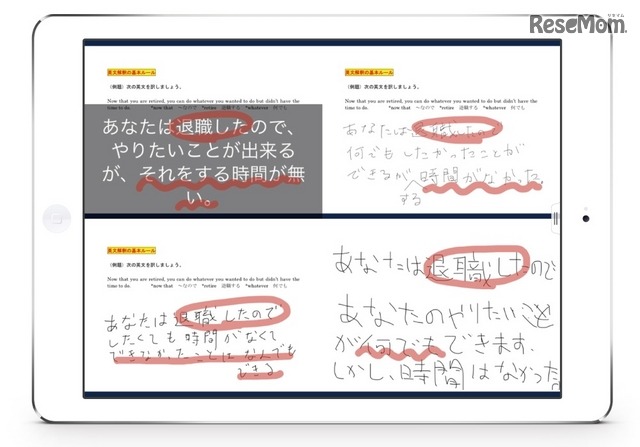 リセマム
ReseMom
英文解釈の基本ルール
(例題) 次の英文を訳しましょう。
Now that you are retired, you can do whatever you wanted to do but didn't have the
time to do. *now that 〜なので *retire 退職する *whatever 何でも
あなたは退職したので、
やりたいことが出来る
が、それをする時間が無
い。
英文解釈の基本ルール
(例題) 次の英文を訳しましょう。
Now that you are retired, you can do whatever you wanted to do but didn't have the
time to do. *now that 〜なので *retire 退職する *whatever 何でも
あなたは退職したので
何でもしたかったことが
できるが 時間がなかった。
する
英文解釈の基本ルール
(例題) 次の英文を訳しましょう。
Now that you are retired, you can do whatever you wanted to do but didn't have the
time to do. *now that 〜なので *retire 退職する *whatever 何でも
あなたは退職したので
したくても時間がなくて
できなかったことはなんでも
できる
あなたは退職したので
あなたのやりたい
が何でもできます.
しかし、時間はなかった